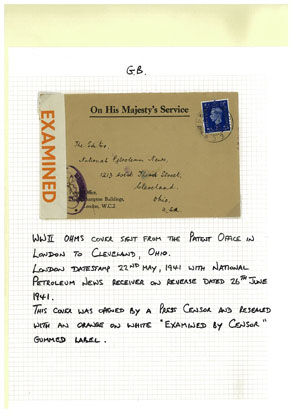 G.B.
EXAMINED
On His Majesty's Service
The Editor,
National Petroleum News,
1213 West Third Street,
Cleveland.
Ohio.
U.S.A.
Office,
Southampton Buildings,
London, W.C.2
WWII OHMS COVER SENT FROM THE PATENT OFFICE IN
LONDON TO CLEVELAND, OHIO.
LONDON DATESTAMP 22ND MAY, 1941 WITH NATIONAL
PETROLEUM NEWS RECEIVER ON REVERSE DATED 26TH JUNE
1941.
THIS COVER WAS OPENED BY A PRESS CENSOR AND RESEALED
WITH AN ORANGE ON WHITE "EXAMINED BY CENSOR"
GUMMED LABEL.